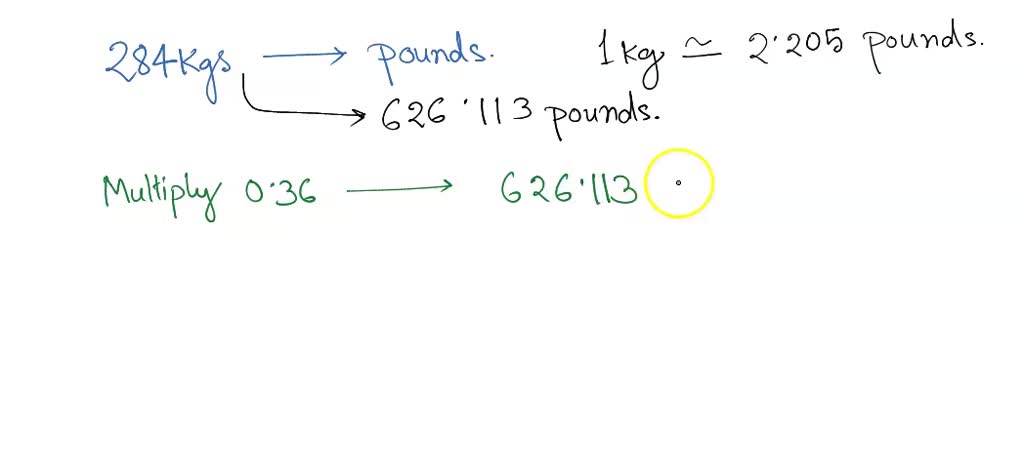 284Kgs → pounds. 1kg ≃ 2·205 pounds.
→ 626·113 pounds.
Multiply 0·36 → 626·113